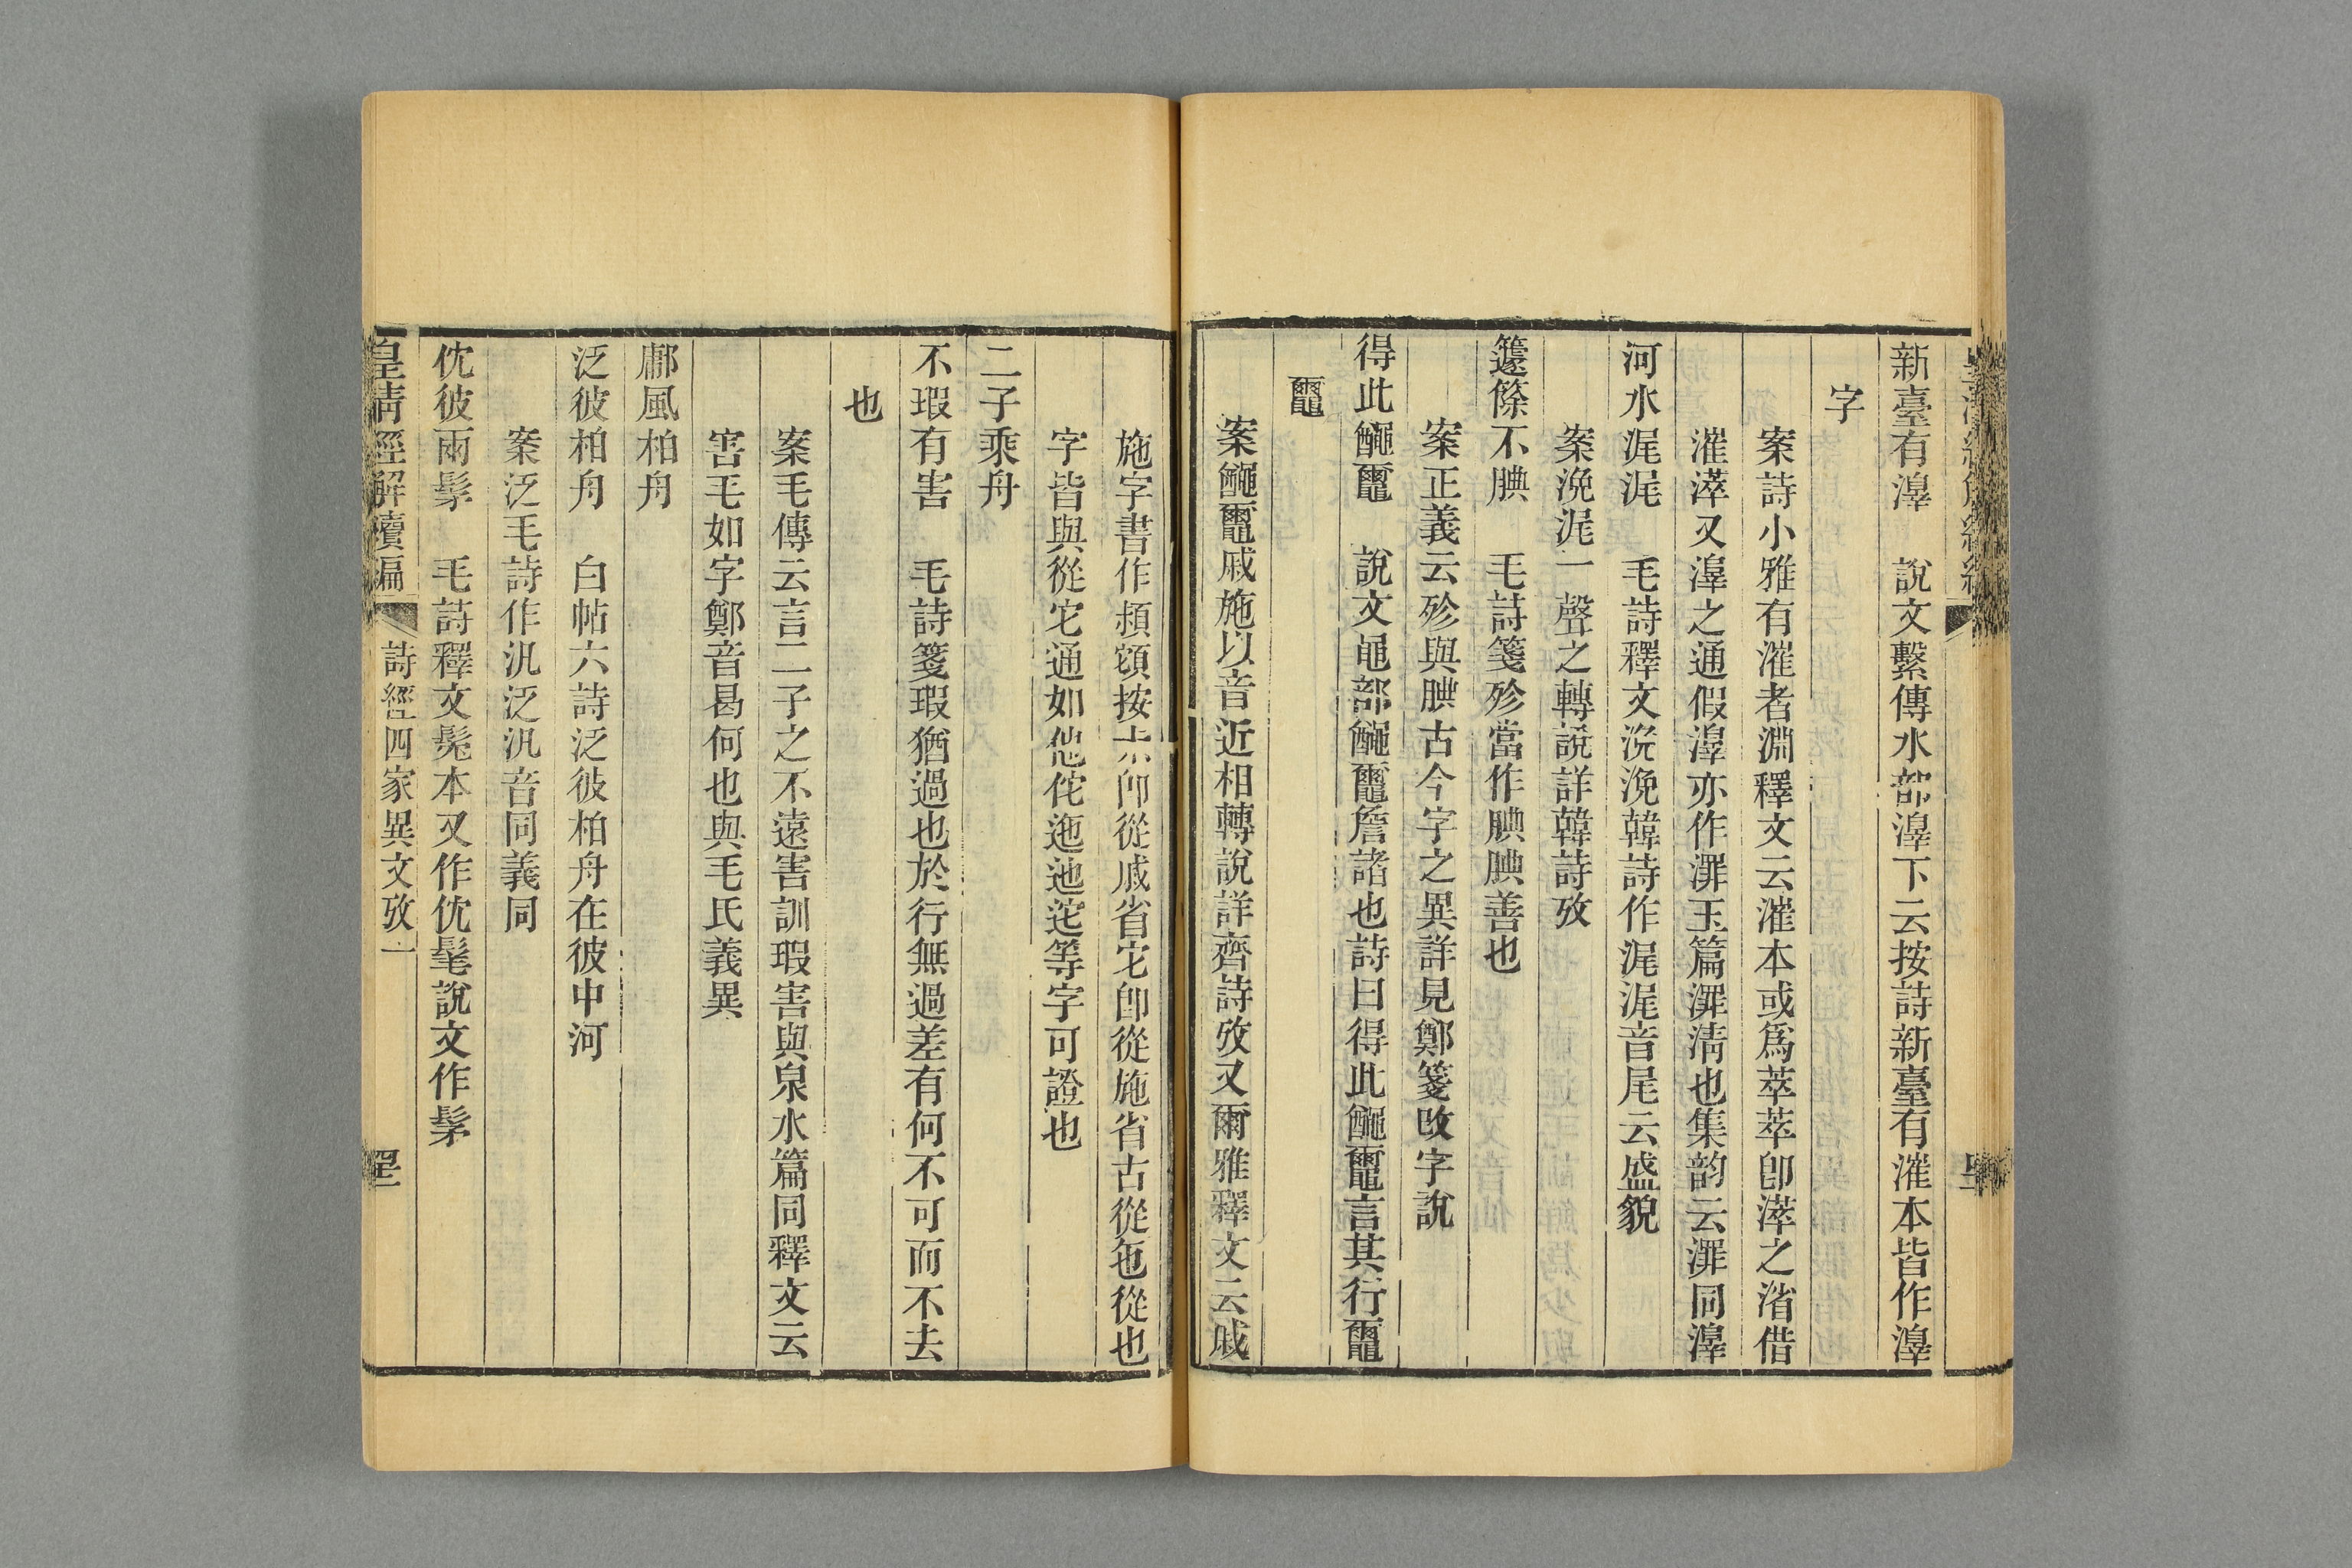 新臺有㵮　說文繫傳水部㵮下云按詩新臺有漼本皆作㵮
字
案詩小雅有漼者淵釋文云漼本或爲萃萃卽濢之渻借
漼濢又㵮之通假㵮亦作澼玉篇澼淸也集韵云澼同㵮
河水浘浘　毛詩釋文浼浼韓詩作浘浘音尾云盛貌
案浼浘一聲之轉說詳韓詩攷
籧篨不腆　毛詩箋殄當作腆腆善也
案正義云殄與腆古今字之異詳見鄭箋改字說
得此𪓰𪓿　說文黽部𪓰𪓿詹諸也詩曰得此𪓰𪓿言其行𪓿
𪓿
案𪓰𪓿戚施以音近相轉說詳齊詩攷又爾雅釋文云戚
施字書作頳䫂按 從戚省㐌卽從施省古從㐌從也
字皆與從㐌通如他佗迤池迱等字可證也
二子乘舟
不瑕有害　毛詩箋瑕猶過也於行無過差有何不可而不去
也
案毛傳云言二子之不遠害訓瑕害與泉水篇同釋文云
害毛如字鄭音曷何也與毛氏義異
鄘風柏舟
泛彼柏舟　白帖六詩泛彼柏舟在彼中河
案泛毛詩作汎泛汎音同義同
㐲彼兩髳　毛詩釋文髧本又作㐲髦說文作髳
皇淸經解續編　詩經四家異文攷一